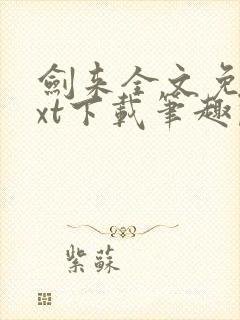 劍来全文免
xt下載筆趣
紫蘇